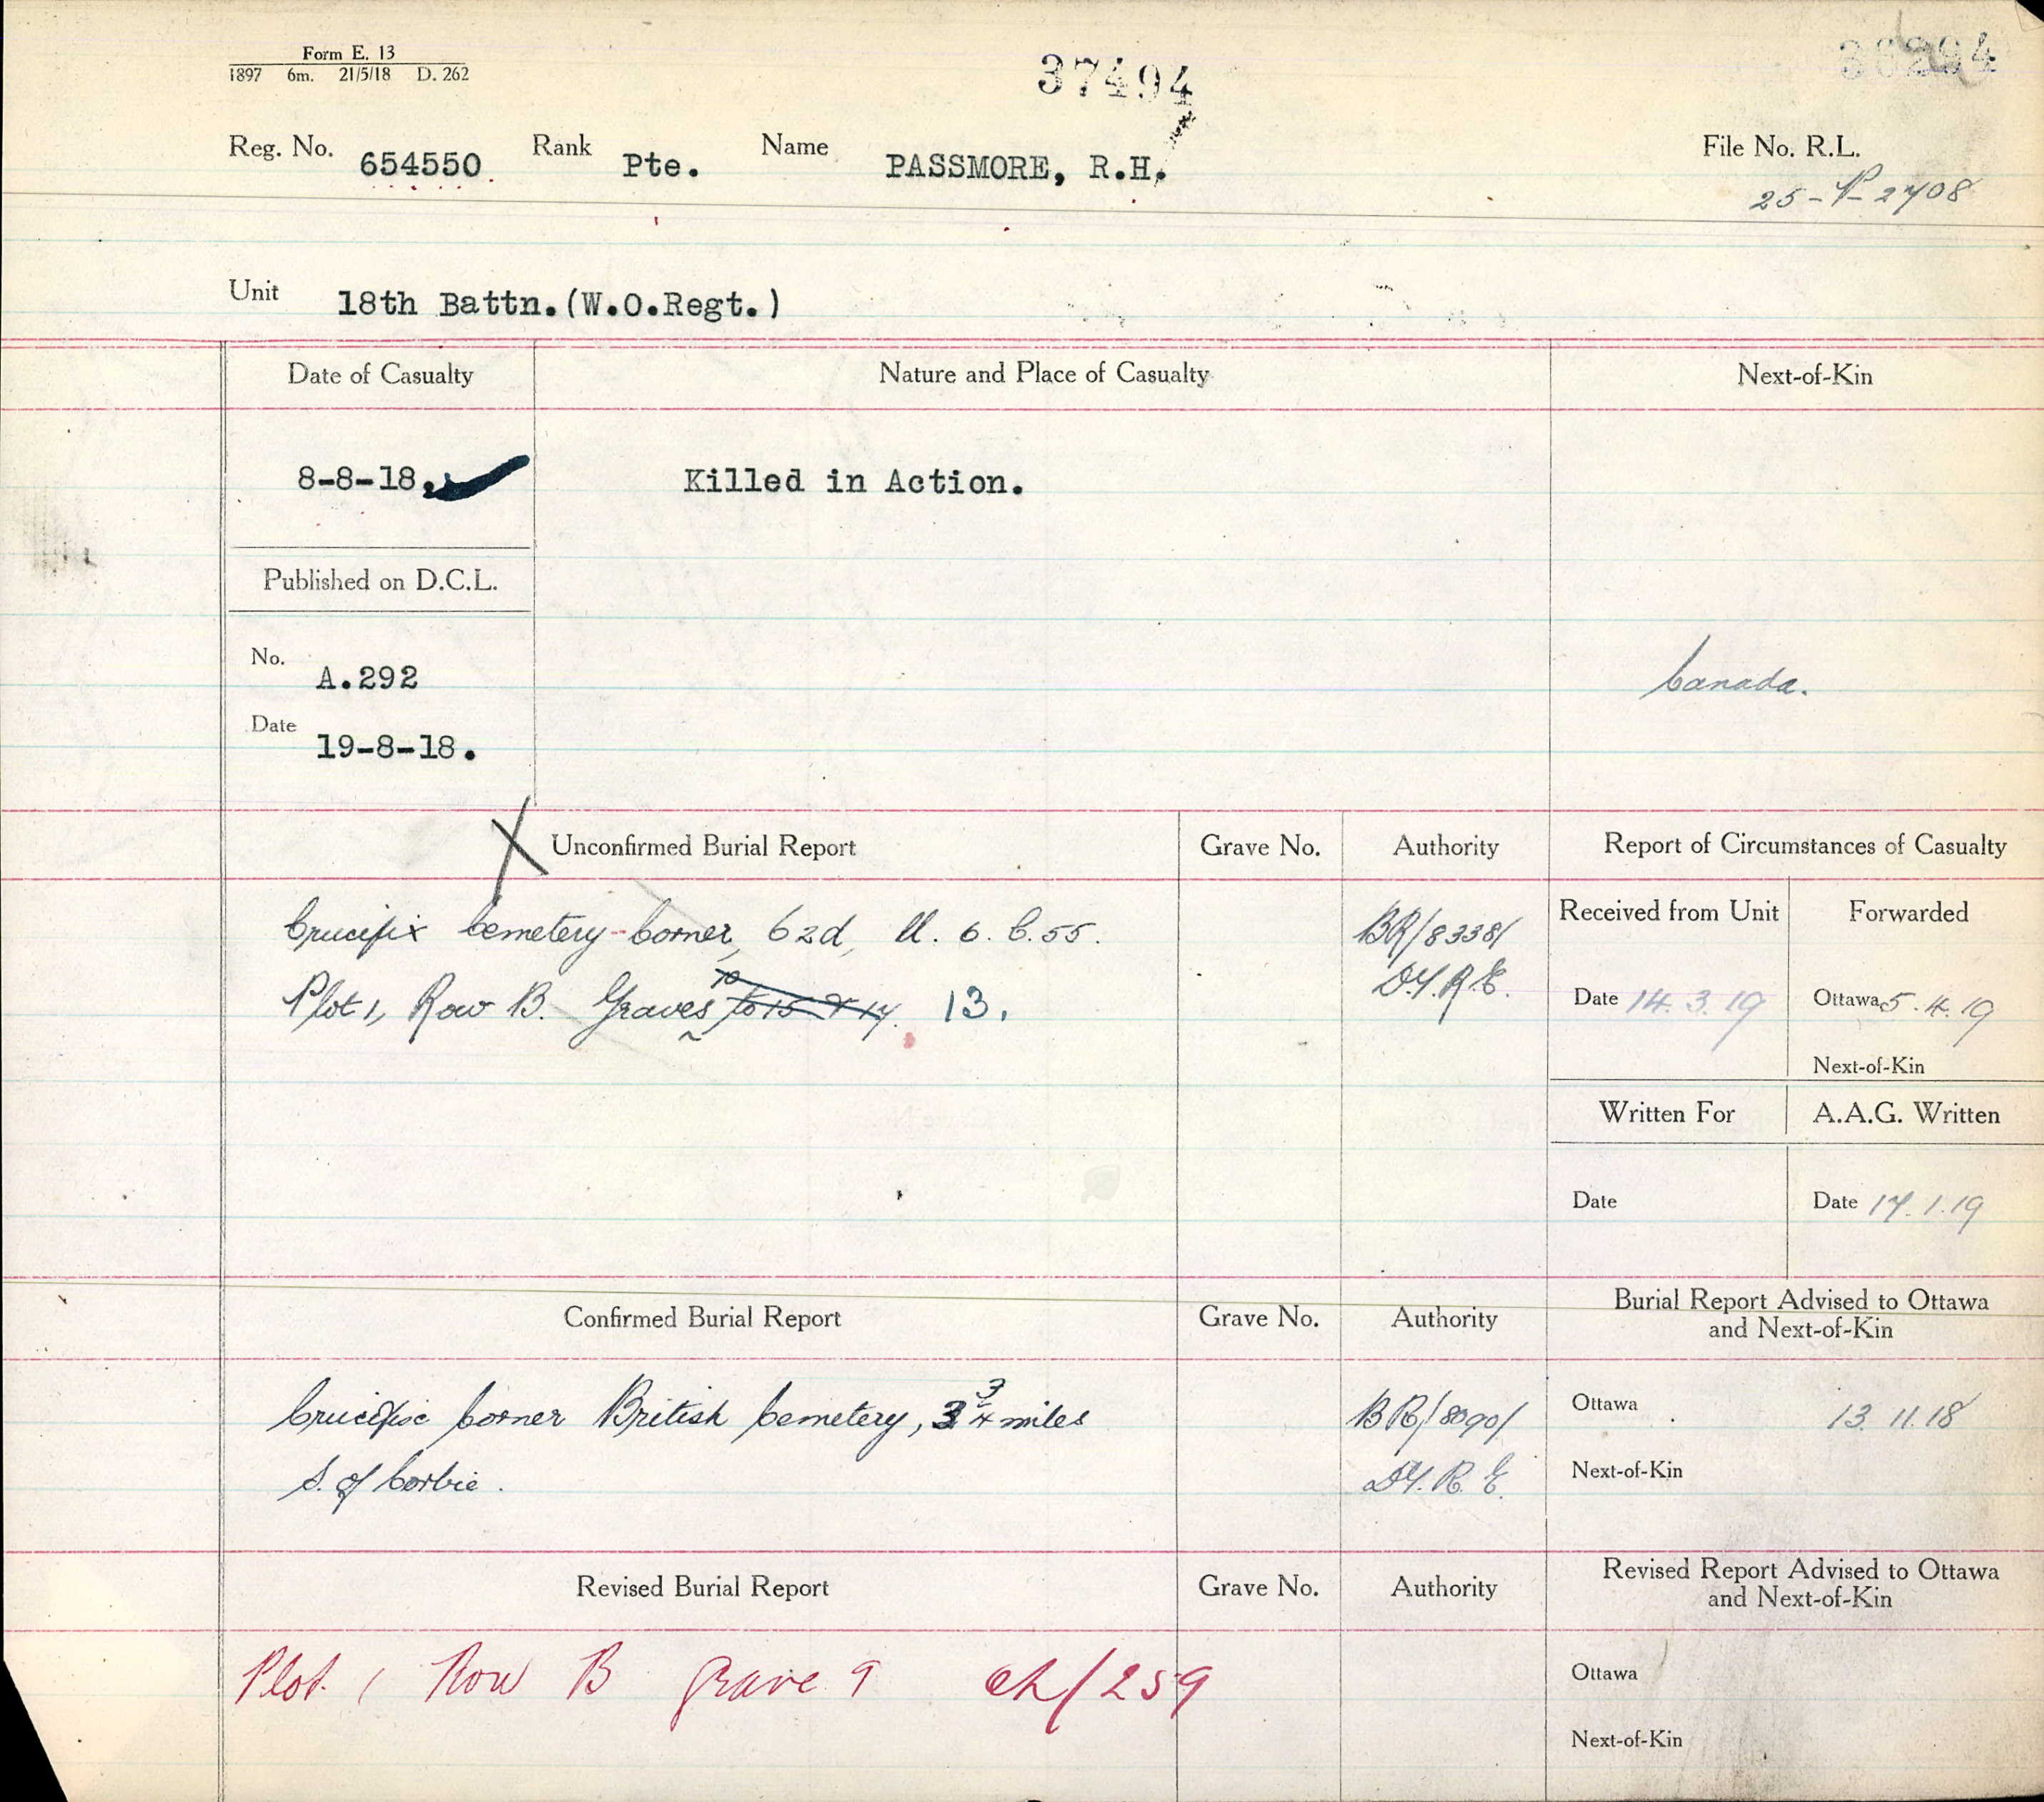 Form E. 13
1897 6m. 21/5/18 D. 262
37494
Reg. No. 654550. Rank Pte. Name PASSMORE, R.H.
File No. R.L.
25-P-2708
Unit 18th Battn.(W.O.Regt.)
Date of Casualty
Nature and Place of Casualty
Next-of-Kin
8-8-18.
Killed in Action.
Published on D.C.L.
No. A.292
Date 19-8-18.
Canada.
Unconfirmed Burial Report
Grave No.
Authority
Report of Circumstances of Casualty
Crucifix Cemetery Corner, 62d, U. 6. C. 55.
BR/8338/
Plot 1, Row B. Graves 13.
D.G.R.E.
Received from Unit
Forwarded
Date 14.3.19
Ottawa 5.4.19
Next-of-Kin
Written For
A.A.G. Written
Date
Date 17.1.19
Confirmed Burial Report
Grave No.
Authority
Burial Report Advised to Ottawa
and Next-of-Kin
Crucifix Corner British Cemetery, 3 3/4 miles
BR/8090/
S. of Corbie.
D.G.R.E.
Ottawa 13.11.18
Next-of-Kin
Revised Burial Report
Grave No.
Authority
Revised Report Advised to Ottawa
and Next-of-Kin
Plot 1 Row B Grave 9 /259
Ottawa
Next-of-Kin